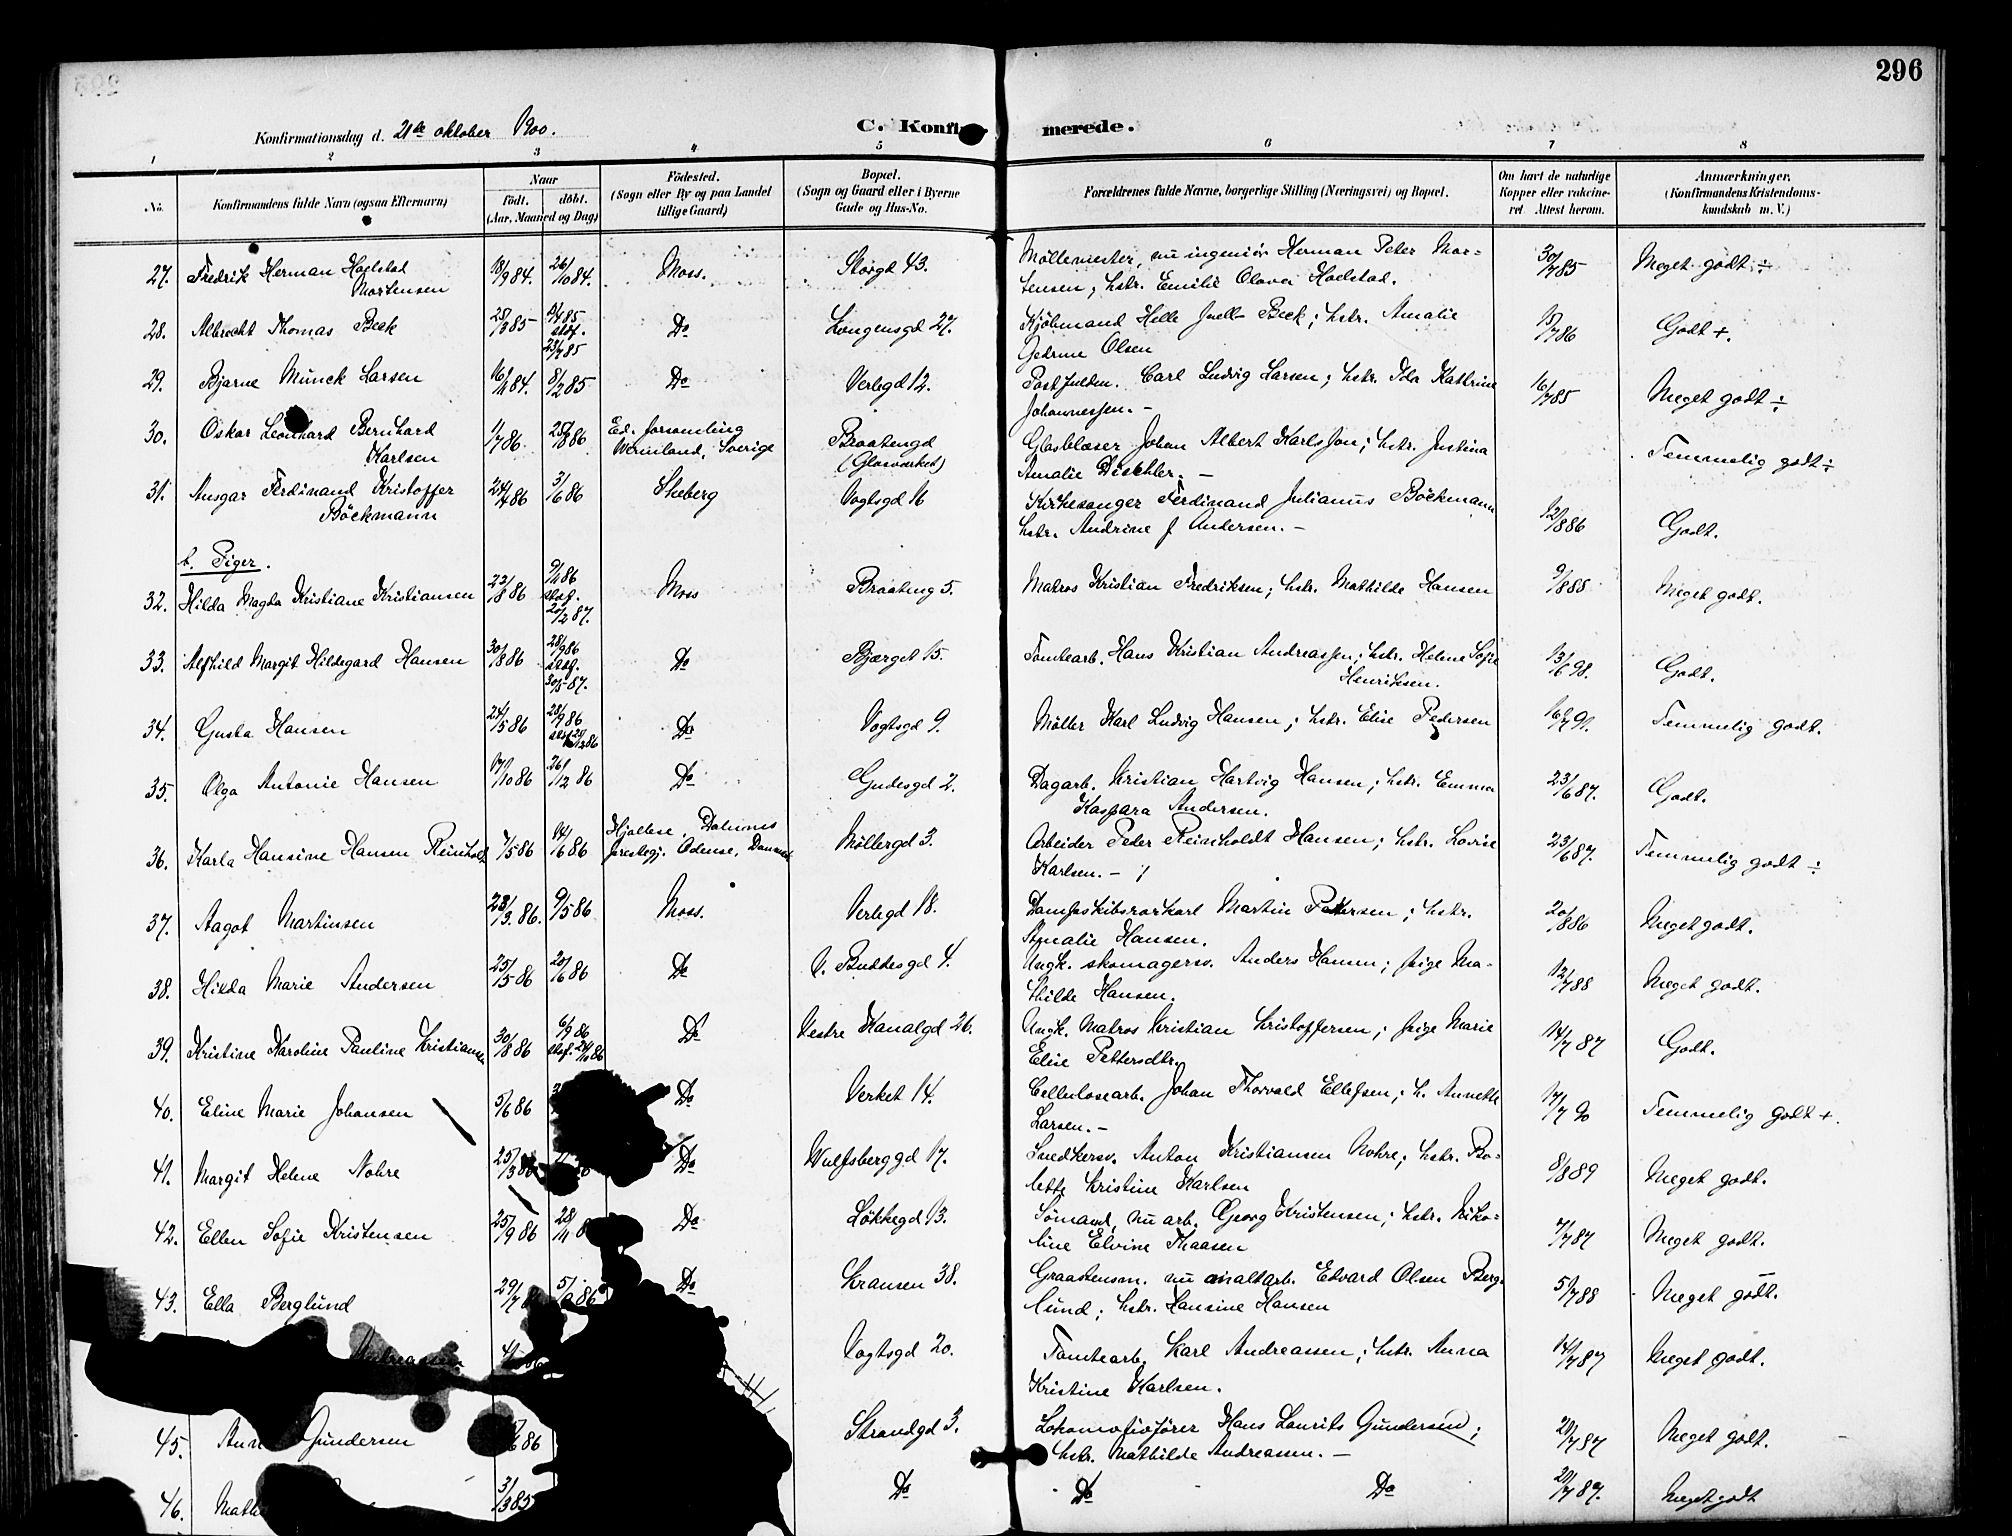 296
Konfirmationsdag d. 21de oktober 1900.
C. Konfirmerede.
1 2 3 4 5 6 7 8
No. Konfirmandens fulde Navn (ogsaa Efternavn) Naar født. døbt. (Aar, Maaned og Dag) Fødested. (Sogn eller By og paa Landet tillige Gaard) Bopæl. (Sogn og Gaard eller i Byerne Gade og Hus-No. Forældrenes fulde Navne, borgerlige Stilling (Næringsvei) og Bopæl. Om havt de naturlige Kopper eller vaccineret Attest herom. Anmærkninger. (Konfirmandens Kristendomskundskab m. V.)
27. Fredrik Herman Hoelstad Mortensen 18/9 84. 26/10 84. Moss. Storgd 43. Møllemester, nu ingeniør Herman Peter Mor-
tensen, hstr. Emilie Olava Hoelstad. 30/7 85 Meget godt ÷
28. Albrecht Thomas Beck 28/3 85 stef. 23/7 85 Do Longensgd 27. Kjøbmand Helle Juell Beck; hstr. Amalie
Gedrine Olsen 15/7 86 Godt +.
29. Bjarne Munck Larsen 16/11 84. 8/2 85 Do Verlegd 12. Postfuldm. Carl Ludvig Larsen; hstr. Ida Kathrine
Johannessen. - 16/7 85 Meget godt ÷
30. Oskar Leonhard Bernhard Karlsen 1/7 86. 25/8 86 Ed. forsamling Wermland, Sverige Braatengd (Glasværket) Glasblæser Johan Albert Karlsson; hstr. Justina
Amalie Dischler. - Temmelig godt ÷
31. Ansgar Ferdinand Kristoffer Böckmann 24/4 86 3/6 86 Skeberg Vogtsgd 16 Kirkesanger Ferdinand Julianus Böckmann
hstr. Andrine f Andersen. - 12/8 86 Godt.
b. Piger.
32. Hilda Magda Kristiane Kristiansen 22/8 86 9/11 86 stef. 20/2 87. Moss Braateng 5. Matros Kristian Fredriksen; hstr. Mathilde Hansen 9/8 88 Meget godt.
33. Alfhild Margit Hildegard Hansen 30/8 86 28/9 86 stef. 30/5 87. Do Bjærget 15. Tomtearb. Hans Kristian Andreassen; hstr. Helene Sofie
Henriksen. 13/6 98. Godt.
34. Gusta Hansen 24/5 86 28/9 86 Do Vogtsgd 9. Møller Karl Ludvig Hansen; hstr. Elise Pedersen 16/7 91. Temmelig godt.
35. Olga Antonie Hansen 17/10 86 26/12 86 Do Gudesgd 2. Dagarb. Kristian Hartvig Hansen; hstr. Emma
Kaspara Andersen. 23/6 87. Godt.
36. Karla Hansine Hansen Reinholdt 7/5 86 14/6 86 Hjallese, Dalums præstegj. Odense, Danmark Møllergd 3. Arbeider Peder Reinholdt Hansen; hstr. Lovise
Karlsen. - 23/6 87. Temmelig godt ÷
37. Aagot Martinsen 28/3. 86. 9/5 86 Moss. Verlegd 18. Dampskibsrorkarl Martin Pettersen; hstr.
Amalie Hansen. 20/8 86 Meget godt.
38. Hilda Marie Andersen 25/5 86 20/6 86 Do V. Buddesgd 4. Ungk. skomagersv. Anders Hansen; pige Ma-
thilde Hansen. 12/7 88 Meget godt.
39. Kristine Karoline Pauline Kristiansen 30/8 86 6/9 86 Do Vestre Kanalgd 26. Ungk. Matros Kristian Kristoffersen; pige Marie
Elise Pettersdtr. 14/7 87 Godt.
40. Eline Marie Johansen 5/6 86 Do Verket 14. Cellulosearb. Johan Thorvald Ellefsen; h. Annette
Larsen. - 17/7 90 Temmelig godt +.
41. Margit Helene Nohre 25/3 86 Do Wulfsberggd 17. Snedkersv. Anton Kristiansen Nohre; hstr. Bo-
lette Kristine Karlsen 8/8 89 Meget godt.
42. Ellen Sofie Kristensen 25/9 86 28/11 8 Do Løkkegd 13. Sømand, nu arb. Georg Kristensen; hstr. Niko-
line Elvine Thaasen 7/7 87 Meget godt.
43. Ella Berglund 29/7 8 5/9 86 Do Kransen 38. Graastensm. nu maltarb. Edvard Olsen Berg-
lund; hstr. Hansine Hansen 5/7 88 Meget godt.
Andreassen Vogtsgd 20. Tomtearb. Karl Andreassen; hstr. Anna
Kristine Karlsen. 14/7 87 Meget godt.
45. Ann Gundersen 86 Strandgd 3. Lokomotivfører Hans Laurits Gundersen;
hstr. Mathilde Andreassen. - 20/7 87 Meget godt.
46. Math 3/3 85 Do Do Do 20/7 87. Meget godt